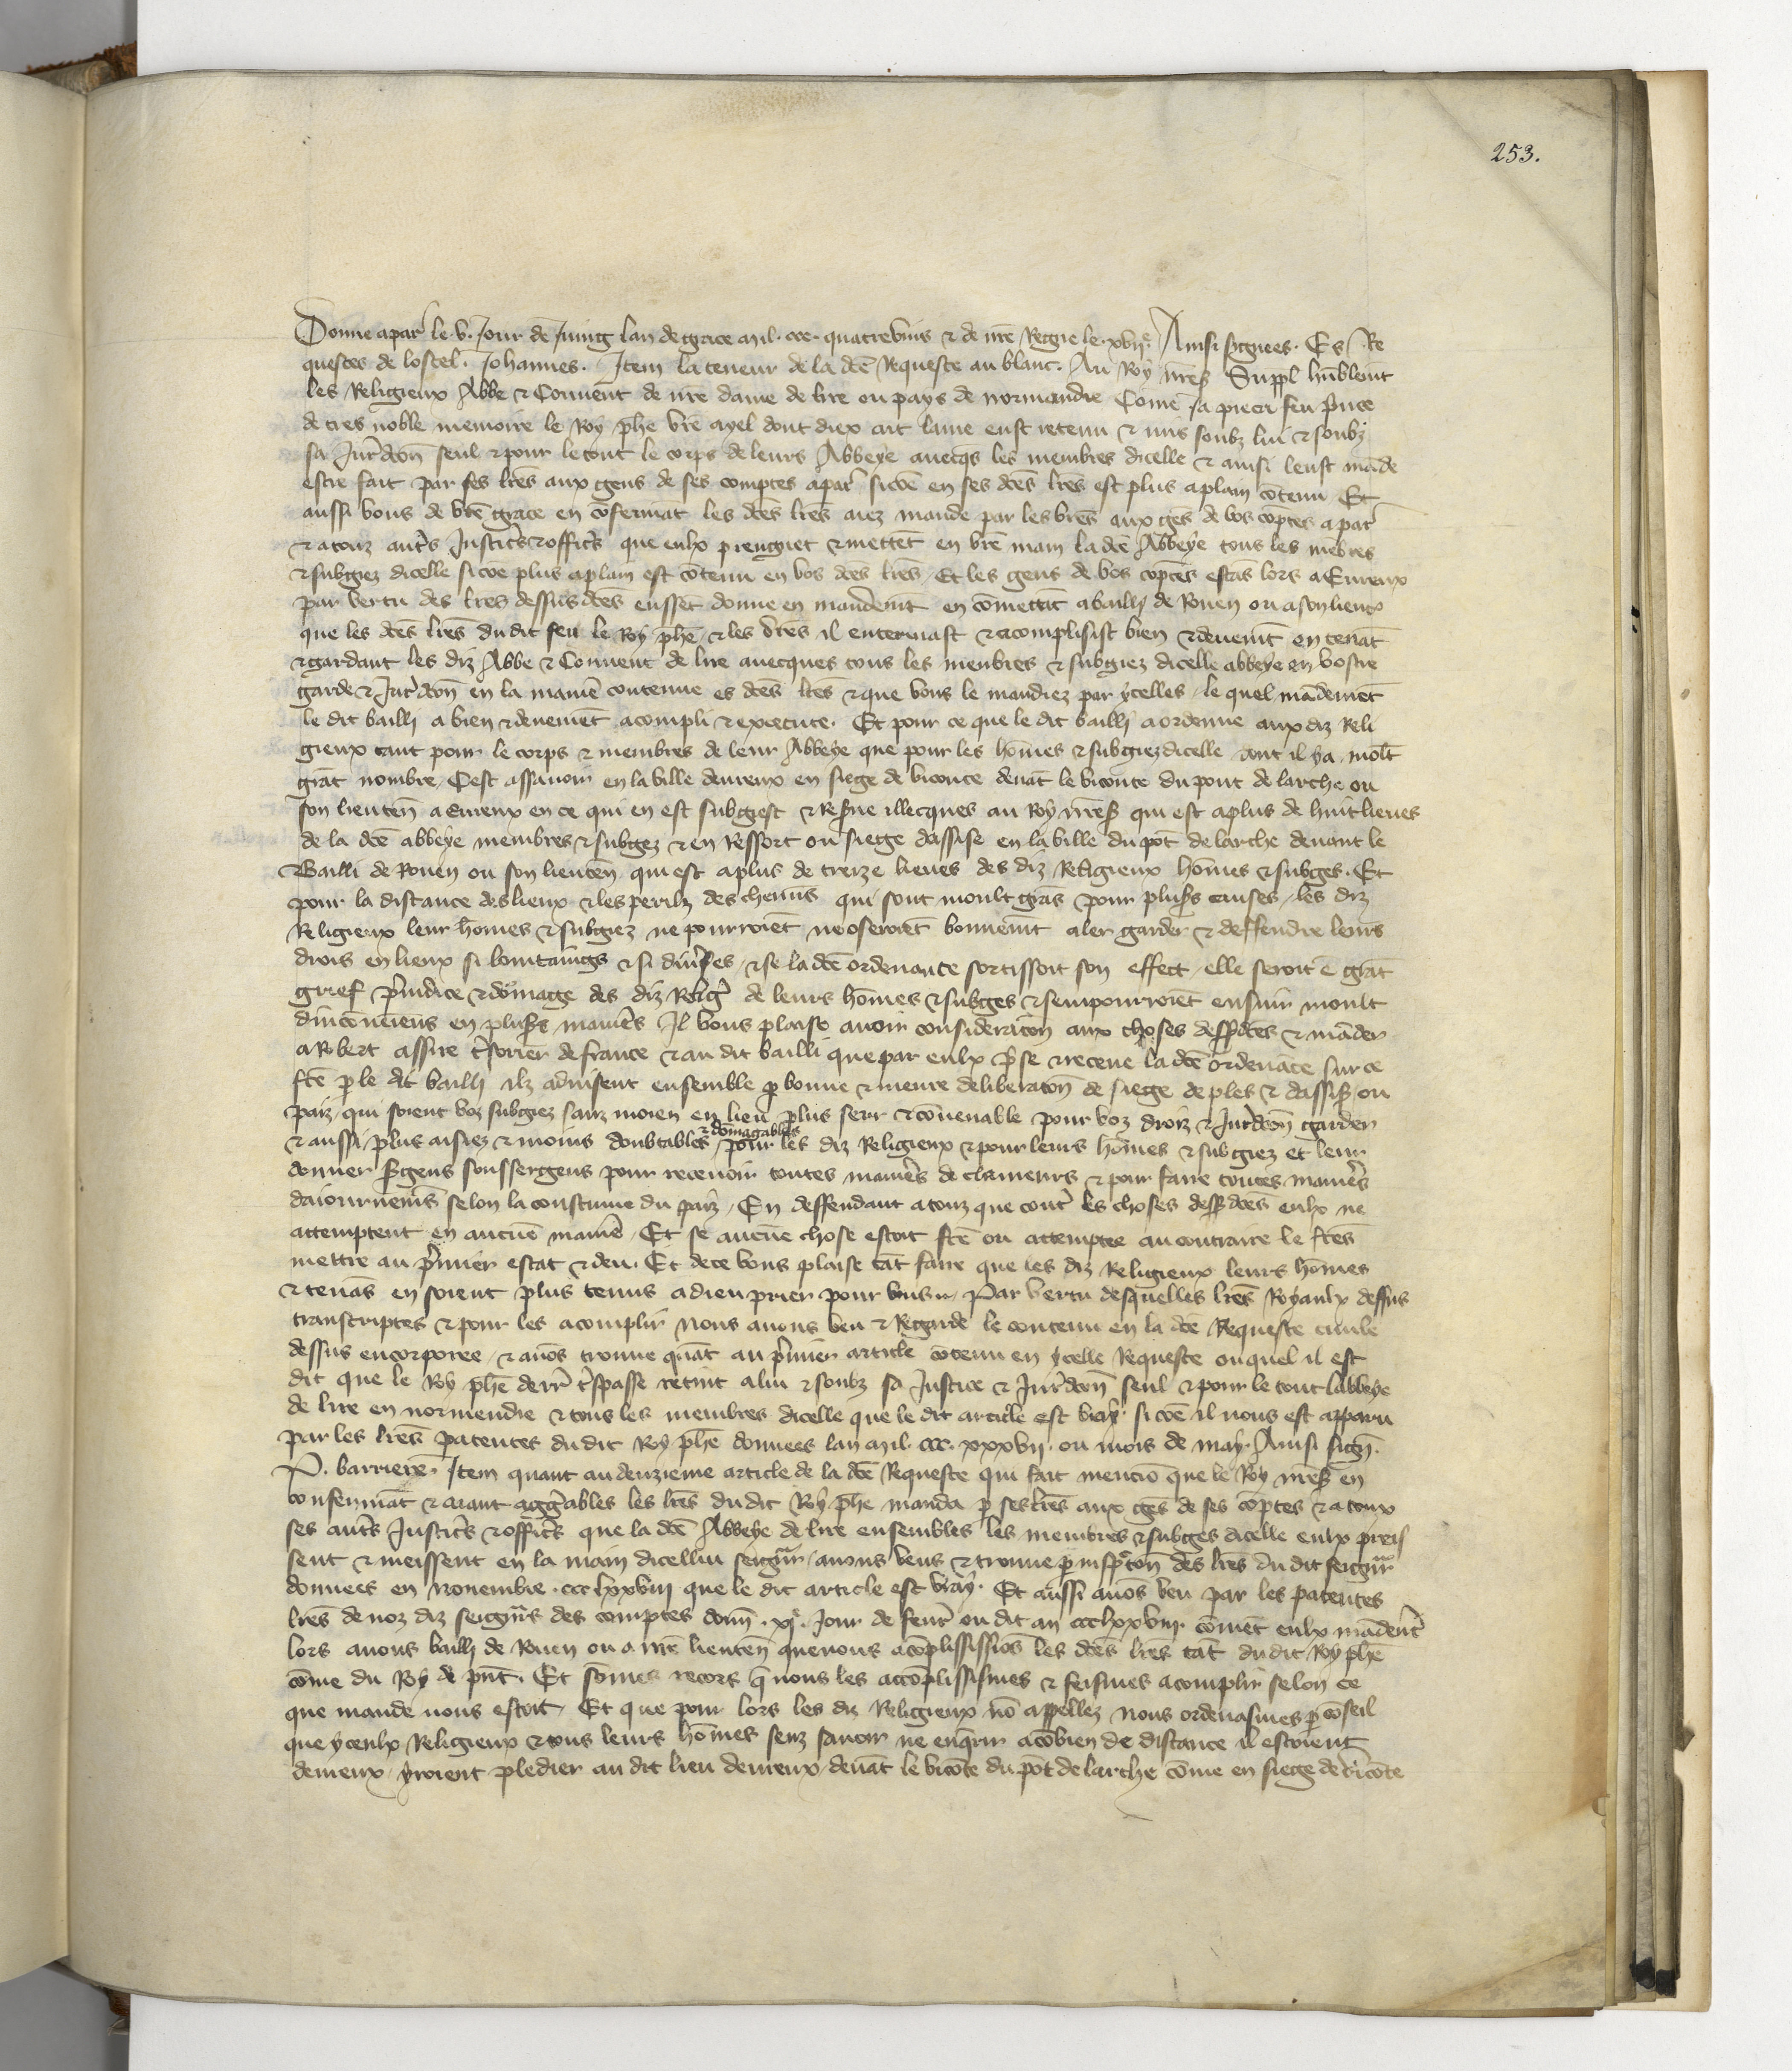 253.
Donne apar̃ le .v. Jour de Juing lan de grace mil. ccc. quatrevins & de nr̃e Regne le .xvije. Ainsi signees. Es Re
questes de lostel. Johannes. Item la teneur de la dc̃e Requeste au blanc. Au Roy nr̃eS Suppl hũblent
les Religieux Abbe & Convent de nr̃e dame de lire ou pays de normandie Come ja pieca feu p̃nce
de tres noble memoire le Roy phẽ vr̃e ayel dont diex ait lame eust retenu & mis soubz lui & soubz
sa Jur̃dc̃on seul & pour le tout le corps de leurs Abbeye avecq̃s les membres dicelle & ainsi leust mãde
estre fait par ses lr̃es aux gens de ses comptes apar̃ sicõe en ses dc̃es lr̃es est plus aplain cõtenu Et
aussi vous de vr̃e grace en cõfermãt les dc̃es lr̃es aiez mande par les vr̃es aux gẽs de vos cõptes a par̃
& a touz aut̃s Justic̃s & offic̃s que eulx prengnẽt & mettẽt en vr̃e main la dc̃e Abbeye tous les mẽbres
& subgiez dicelle si cõe plus aplain est cõtenu en vos dc̃es lr̃es / Et les gens de vos cõptes estãs lors a Evreux
par vertu des lr̃es dessus dc̃es eussẽt donne en mandemt̃ en cõmettãt a bailli de Rouen ou a son lieuto
que les dc̃es lr̃es du dit feu le Roy phẽ & les vr̃es il enterinast & acomplisist bien & devemt̃ en tenãt
& gardant les diz Abbe & Convent de lire avecques tous les menbres & subgiez dicelle abbeye en vostre
garde & Jur̃dc̃on en la manie̴ contenue es dc̃es lr̃es & que vous le mandiez par ycelles / le quel mãdemẽt
le dit bailli a bien & devemẽt acompli & execute. Et pour ce que le dit bailli a ordenne aux diz Reli
gieux tant pour le corps & membres de leur Abbeye que pour les hõmes & subgiez dicelle dont il ya molt̃
grãt nombre / Cest assavoir en la ville devreux en siege de viconte devãt le viconte du pont de larche ou
son lieutẽn a evreux en ce qui en est subgest & Resine illecques au Roy nr̃eS qui est a plus de huit lieues
de la dc̃e abbeye membres & subgez & en Ressort ou siege dassise en la ville du põt de larche devant le
Bailli de Rouen ou son lieutẽn qui est a plus de treize lieues des diz Religieux hõmes & subges. Et
pour la distance des lieux & les perilz des chemĩs qui sont moult grãs pour plus̃s causes / les diz
Religieux leur hõmes & subgiez ne pourroiẽt ne oseroiẽt bonnemt̃ aler garder & deffendre leurs
drois en lieux si lointaings & si div̾ses / & se la dc̃e ordenance sortissoit son effect / elle seroit ẽ grãt
grief p̃iudice & dõmage des diz Relig̾ de leurs hõmes & subges & sempourroiẽt ensuir moult
dincõveniens en plus̃s manie̴s Il vous plaise avoir considerac̃on aux choses dessˢdc̃es & mãder
a Robert assire t̃sorier de france & au dit bailli que par eulx p̃se & receue la dc̃e ordenãce sur ce
fcẽ p le dit bailli ilz advisent ensemble p bonne & meure deliberac̃on de siege de ples & dassis̾ ou
paiz / qui soient voz subgiez sanz moien en lieu plus seur & cõvenable pour voz droiz & Jur̃dc̃on garder
& aussi plus aisiez & moins doubtables & dõmagables pour les diz Religieux & pour leurs hõmes & subgiez et leur
donner s̾gens soussergens pour recevoir toutes manie̴s de clameurs & pour faire toutes manie̴s
daiournemẽs selon la coustume du paiz / En deffendant a touz que cont̾ les choses dessˢdc̃es eulx ne
attemptent en aucũe manie̴ / Et se aucũe chose estoit fcẽ ou attemptee au contraire le fcẽs
mettre au p̃mier estat & deu. Et de ce vous plaise tãt faire que les diz Religieux leurs hõmes
& tenãs en soient plus tenus a dieu prier pour vous. Par vertu desquelles lr̃es Royaulx dessus
transcriptes & pour les acomplir nous avons veu & Regarde le contenu en la dc̃e Requeste cy
dessus encorporee / & avõs trouve quãt au p̃mier article cõtenu en ycelle Requeste ou quel il est
dit que le Roy phẽ derr̃ t̾spasse retint a lui & soubz sa Justice & Jur̃dc̃on seul & pour le tout labbeye
de lire en normendie & tous les membres dicelle que le dit article est vray. si cõe il nous est apparu
par les lr̃es patentes du dit Roy phẽ donnees lan mil. ccc. xxxvij. ou mois de may. Ainsi sign̄.
P. barriere. Item quant au deuzieme article de la dc̃e Requeste qui fait mencio̴ que le Roy nr̃eS en
confermãt & aiant agg̾ables les lr̃es du dit Roy phẽ manda p ses lr̃es aux gẽs de ses cõptes & a toux
ses aut̃s Justic̃s & offic̃s que la dc̃e Abbeye de lire ensembles les membres & subges dicelle eulx preis
sent & meissent en la main dicellui seignr̃ / avons veus & trouve p inspc̃ton des lr̃es du dit seignr̃
donnees en novembre. ccclxxviij que le dit article est vray. Et aussi avõs veu par les patentes
lr̃es de noz diz seignr̃s des comptes donn̄ .xje. Jour de fevr̃ ou dit an ccclxxviij. cõmẽt eulx mãderẽt
lors a nous bailli de Rouen ou a nr̃e lieutẽn que nous acõplississ̃iõs les dc̃es lr̃es tãt du dit Roy phẽ
cõme du Roy de p̃nt. Et sõmes recors q̃ nous les accõplissismes & feismes acomplir selon ce
que mande nous estoit / Et que pour lors les diz Religieux nõ appellez nous ordenasmes p cõseil
que yceulx Religieux & tous leurs hõmes senz savoir ne enq̃rir acõbien de distance il estoient
devreux / yroient pledier au dit lieu devreux / devãt le vicõte du põt de larche cõme en siege de vicõte